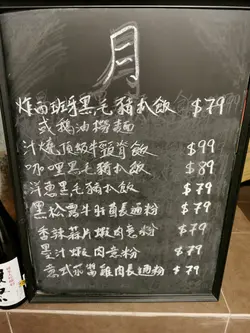 月
炸西班牙黑毛豬扒飯 $79
或鵝油撈麵
汁燒頂級牛頸脊飯 $99
咖哩黑毛豬扒飯 $89
汁煮黑毛豬扒飯 $79
黑松露牛肝菌長通粉 $79
香辣蒜片蝦肉意粉 $79
墨汁蝦肉意粉 $79
意式水醬雞肉長通粉 $79